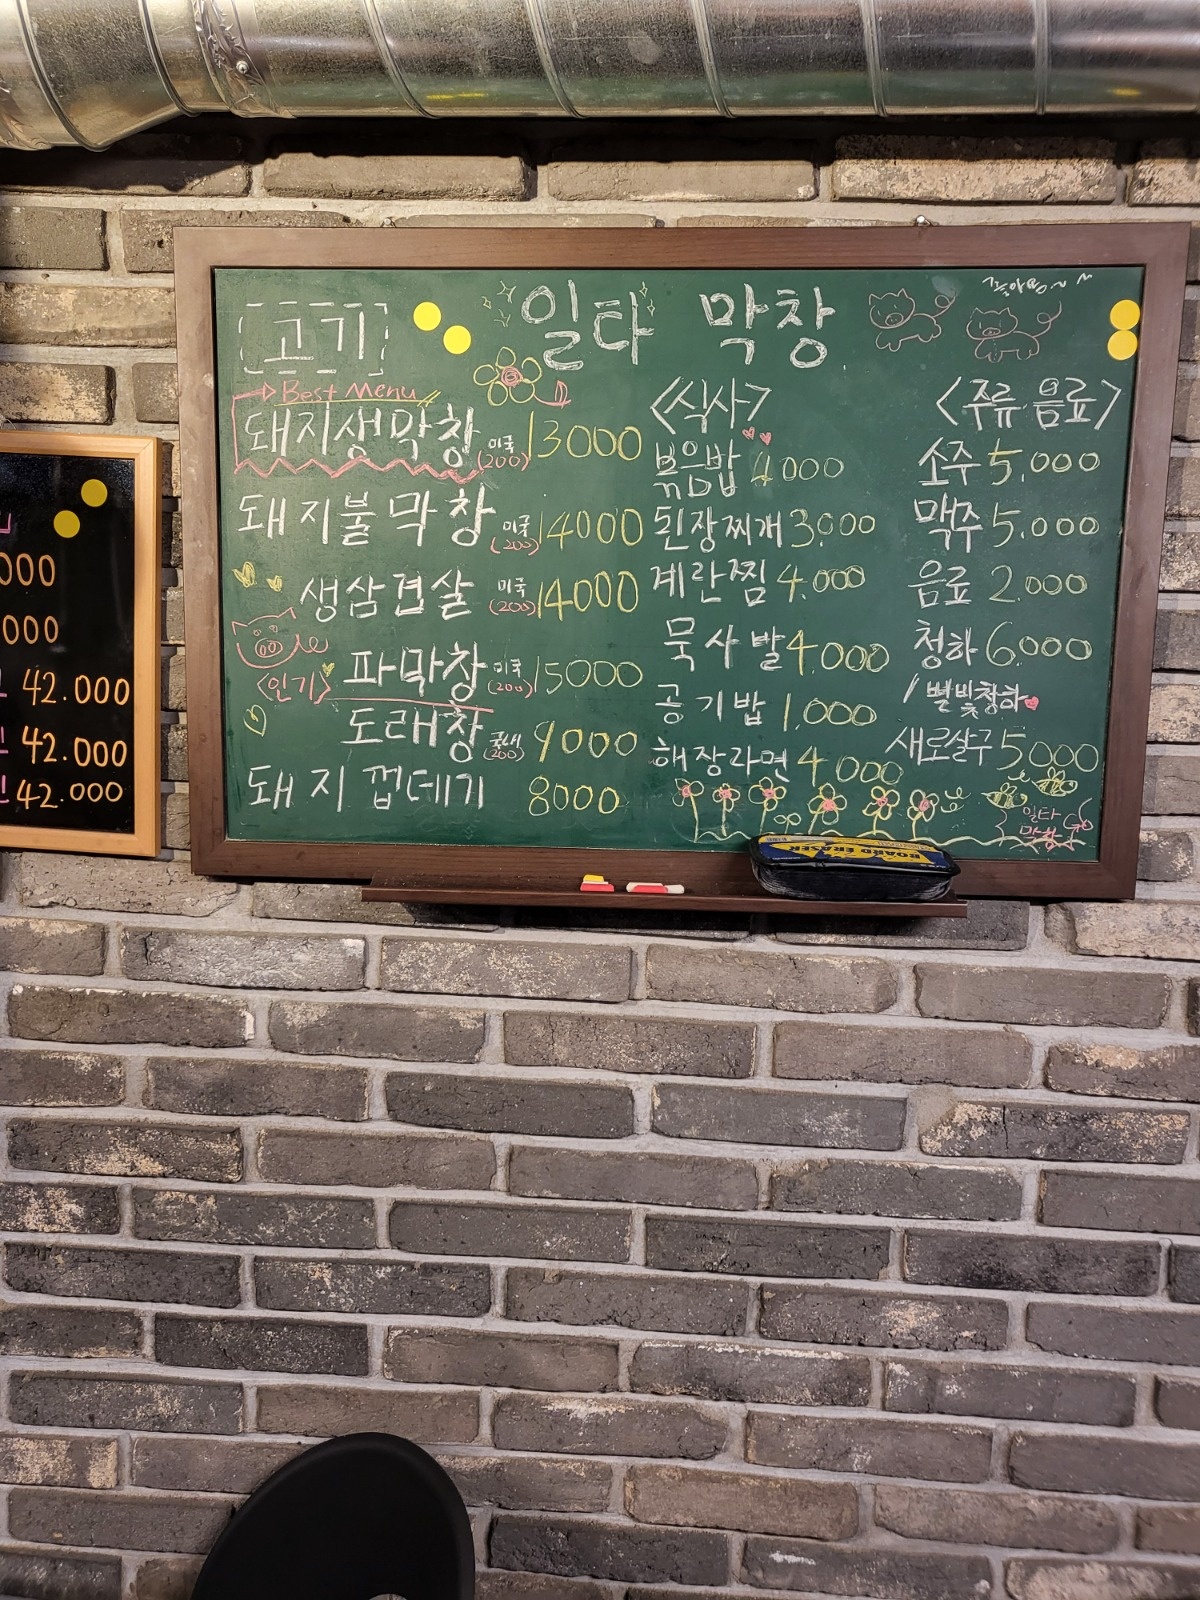 일타 막창
좋아용~~
고기
Best Menu
돼지생막창 미국 (200) 13000
돼지불막창 미국 (200) 14000
생삼겹살 미국 (200) 14000
<인기> 파막창 미국 (200) 15000
도래창 국내 (200) 9000
돼지껍데기 8000
<식사>
볶음밥 4000
된장찌개 3,000
계란찜 4.000
묵사발 4.000
공기밥 1.000
해장라면 4.000
<주류 음료>
소주 5.000
맥주 5.000
음료 2.000
청하 6.000
/별빛청하
새로살구 5000
일타
막창
BOARD ERASER
000
000
42.000
42.000
42.000